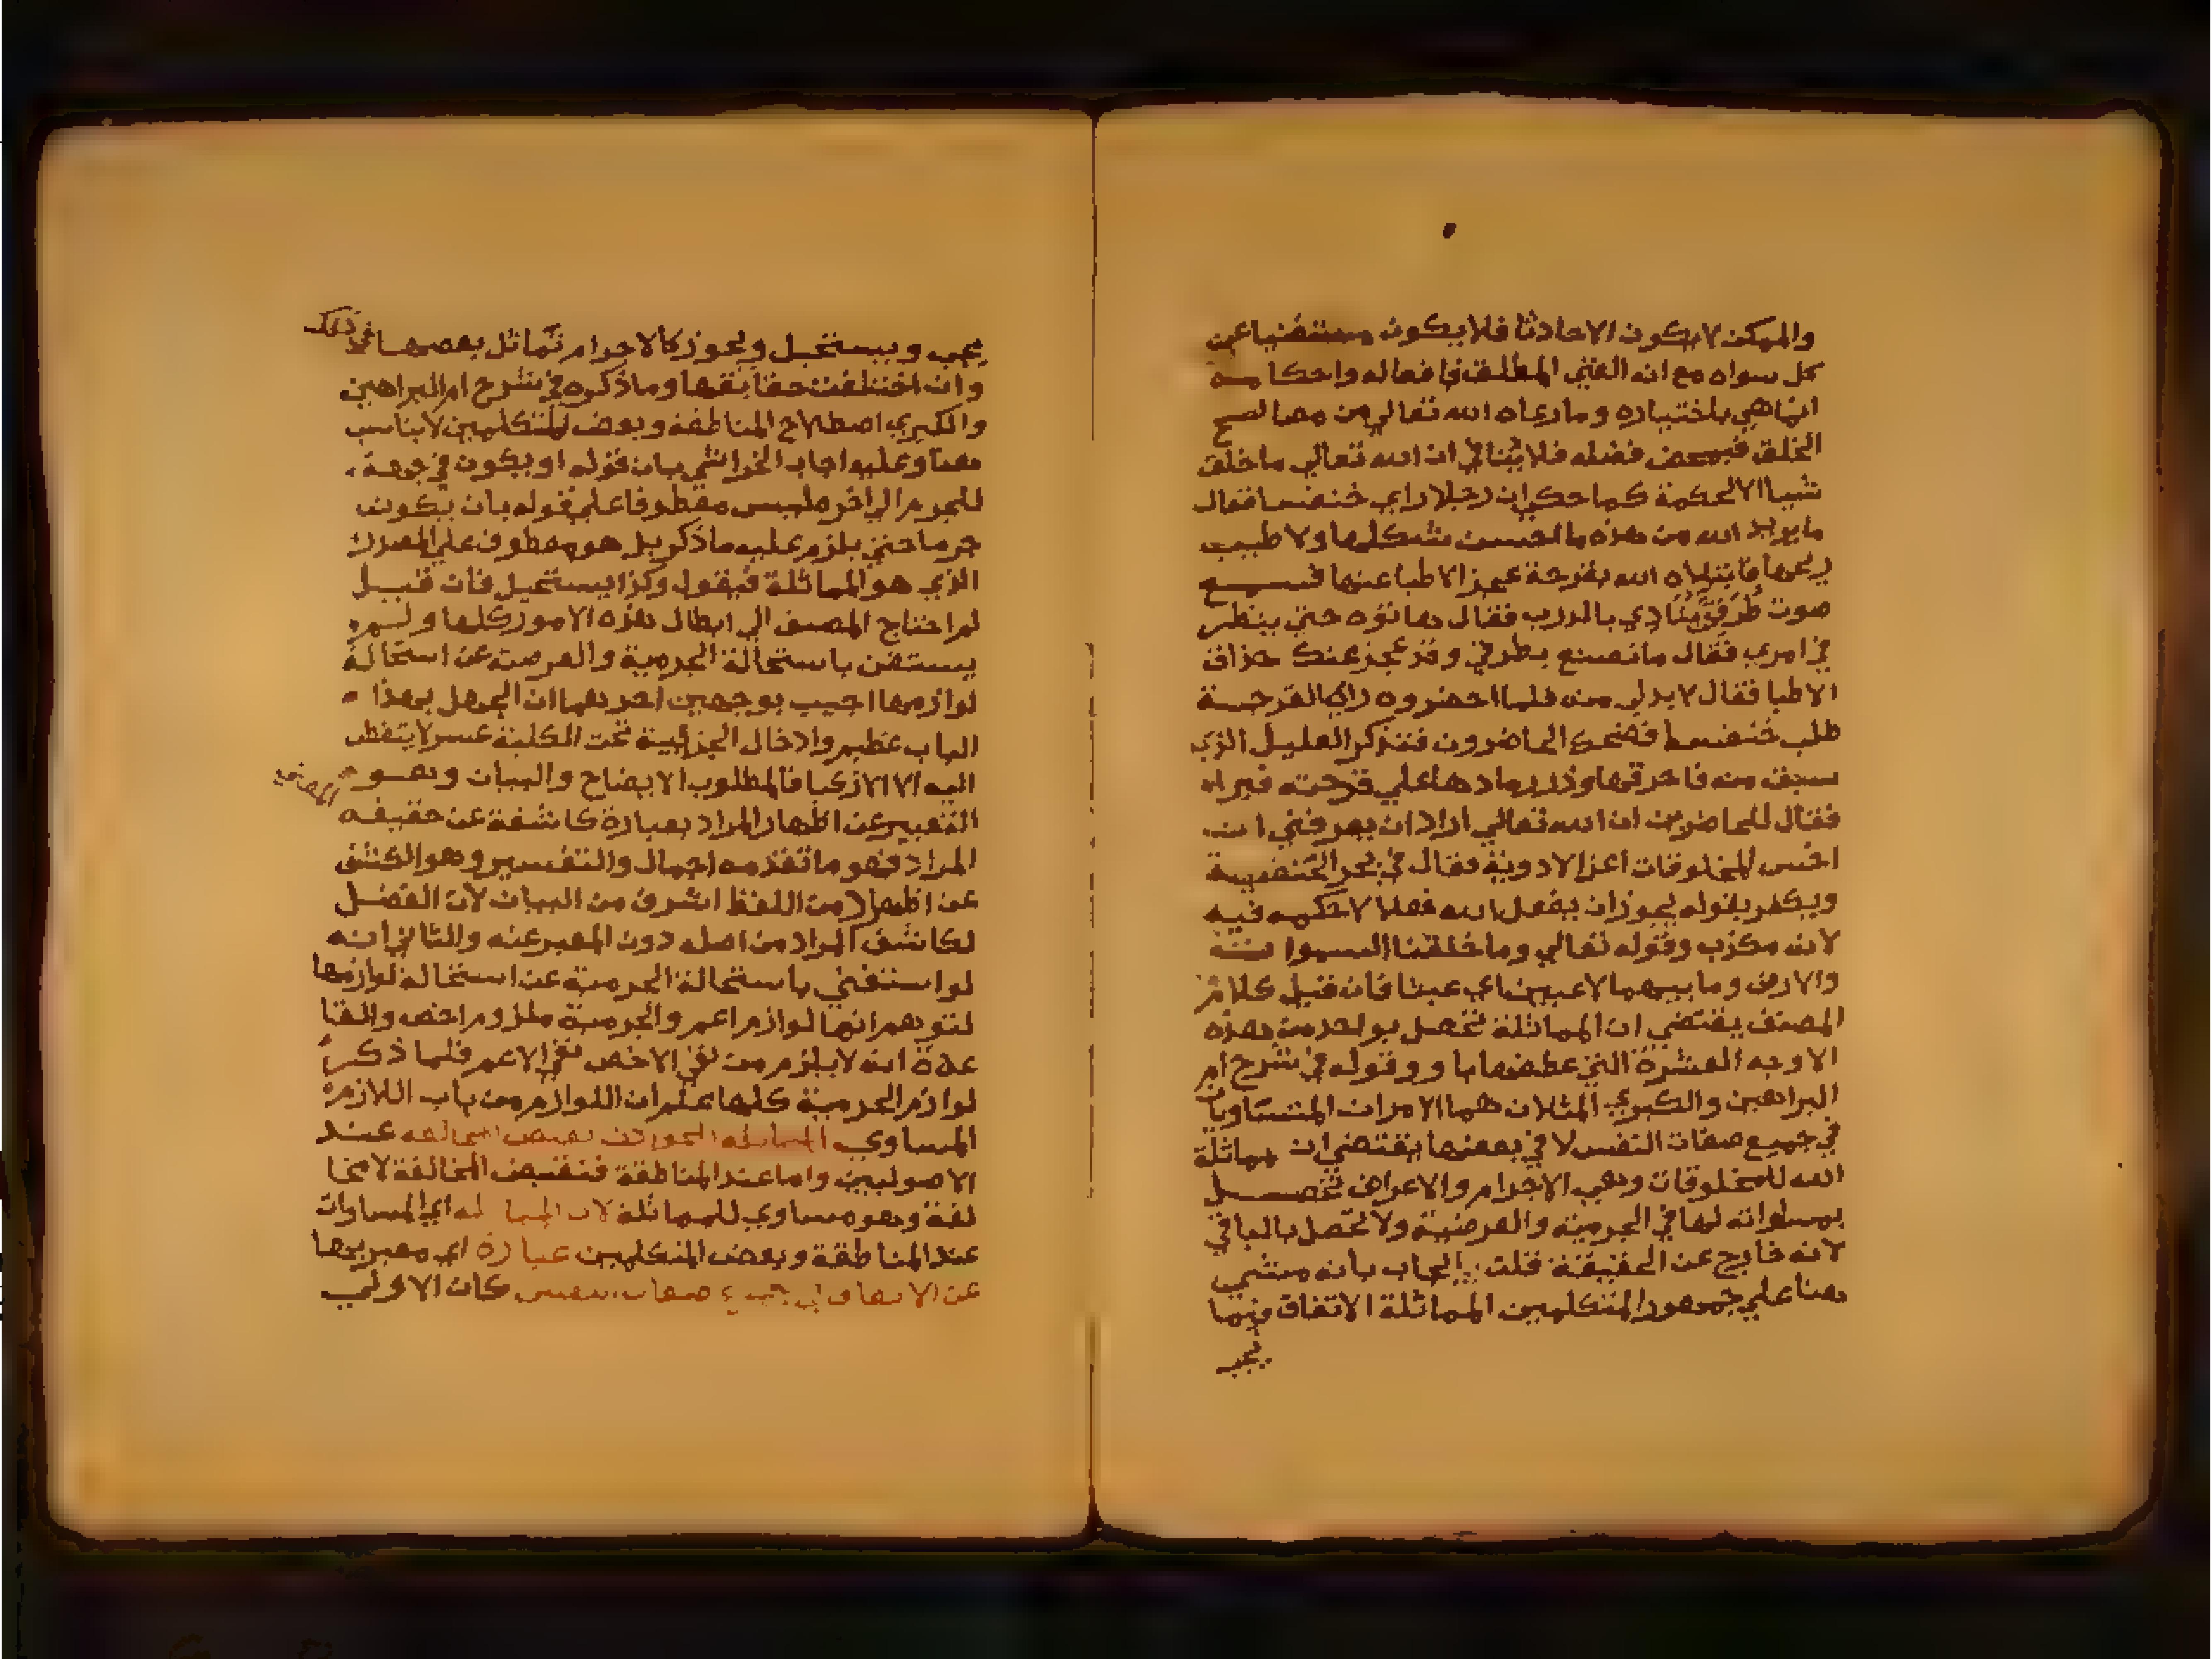 والممكن لا يكون الا حادثا فلا يكون مستغنيا عن
كل سواه مع انه الغني المطلق في افعاله واحكامه
انما هي باختياره وما رعاه الله تعالي من مصالح
الخلق فبمحض فضله فلا ينافي ان الله تعالي ما خلق
شيا الا لحكمة كما حكي ان رجلا راي خنفسا فقال
ما يريد الله من هذه ما الحسن شكلها ولا طيب
ريحها فابتلاه الله بقرحة عجز الاطبا عنها فسمع
صوت طرقي ينادي بالدرب فقال هاتوه حتي ينظر
في امري فقال ما تصنع بطرقي وقد عجز عنك حذاق
الاطبا فقال لا بد لي منه فلما احضروه راي القرحة
طلب خنفسا فضحك الحاضرون فتذكر العليل الذي
سبق منه فاحرقها وذر رمادها علي قرحته فبراه
فقال للحاضرين ان الله تعالي اراد ان يعرفني ان
اخس المخلوقات اعز الادوية نقال في بحر
ويكفر بقوله يجوز ان يفعل الله فعلا لا حكمه فيه
لانه مكذب وقوله تعالي وما خلقنا السموات
والارض وما بينهما لاعبين اي عبثا فان قيل كلام
المصنف يقتضي ان المماثلة تحصل بواحد من هذه
الاوجه العشرة التي عطفها باو وقوله في شرح ام
البراهين والكبري المثلان هما الامران المتساويان
في جميع صفات النفس لا في بعضها يقتضي ان مماثلة
الله للمخلوقات وهي الاجرام والاعراض تحصل
بمساواته لها في الجرمية والعرضية ولا تحصل بالباقي
لانه خارج عن الحقيقة قلت الجاب بانه مشي
هنا علي جمهور المتكلمين المماثلة الاتفاق فيما
يجب
يجب ويستحيل ويجوز كالاجرام تماثل بعضها في ذلك
وان اختلفت حقايقها وما ذكره في شرح ام البراهين
والكبري اصطلاح المناطقة وبعض المتكلمين لا يناسب
هنا وعليه اجاب الخراشي بان قوله او يكون في جهة
للجرم الي اخره ليس معطوفا علي قوله بان يكون
جرما حتي يلزم عليه ما ذكر بل هو معطوف علي المصدر
الذي هو المماثلة فيقول وكذا يستحيل فان قيل
لم احتاج المصنف الي ابطال هذه الامور كلها ولم
يستغن باستحالة الجرمية والعرضية عن استحالة
لوازمها اجيب بوجهين احدهما ان الجهل بهذا
الباب عظيم وادخال الجزئية تحت الكلية عسر لا يتفطن
اليه الا الاذكيا فالمطلوب الايضاح والبيان وهو
التعبير عن اظهار المراد بعبارة كاشفة عن حقيقة
المراد فهو ما تقدمه اجمال والتفسير وهو الكشف
عن اظهار من اللفظ اشرف من البيان لان الفضل
لكاشف المراد من اصله دون المعبر عنه والثاني انه
لو استغني باستحالة الجرمية عن استحالة لوازمها
لتوهم انها لوازم اعم والجرمية ملزوم اخص والقا
عدة انه لا يلزم من نفي الاخص نفي الاعم فلما ذكر
لوازم الجرمية كلها علم ان اللوازم من باب اللازم
المساوي المماثلة للحوادث نقيض المخالفة عند
الاصوليين واما عند المناطقة فنقيض المخالفة لا مخا
لفة وهو مساوي للمماثلة لان المماثلة اي المساوات
عند المناطقة وبعض المتكلمين عبارة اي معبر بها
عن الاتفاق في جميع صفات النفس كان الاولي